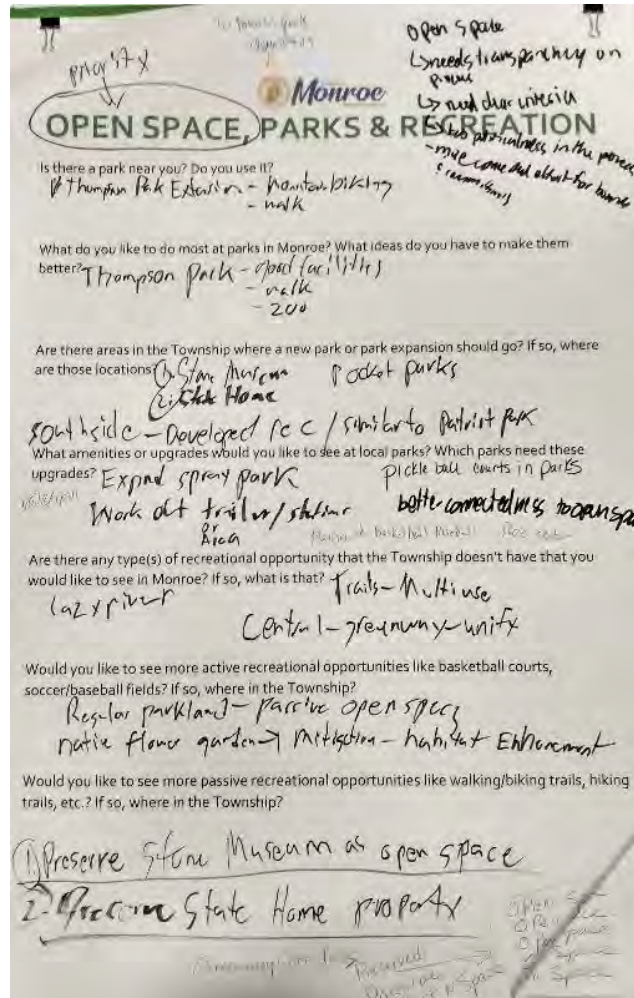 priority
Open Space
↳ needs transparency on
Monroe
OPEN SPACE, PARKS & RECREATION
in the
Is there a park near you? Do you use it?
Thompson Park Extension - mountain biking
- walk
What do you like to do most at parks in Monroe? What ideas do you have to make them
better? Thompson Park - good facilities
- walk
- zoo
Are there areas in the Township where a new park or park expansion should go? If so, where
are those locations? 1. Stone Museum Pocket parks
2. State Home
Southside - Developed rec / similar to Patriot Park
What amenities or upgrades would you like to see at local parks? Which parks need these
upgrades? Expnd spray park Pickle ball courts in parks
Work out trailer/stations better connectedness to open spa
or
Area
Are there any type(s) of recreational opportunity that the Township doesn't have that you
would like to see in Monroe? If so, what is that? Trails - Multiuse
Lazy river
Central - greenway - unify
Would you like to see more active recreational opportunities like basketball courts,
soccer/baseball fields? If so, where in the Township?
Regular parkland - passive open space
native flower garden → mitigation - habitat Enhancement
Would you like to see more passive recreational opportunities like walking/biking trails, hiking
trails, etc.? If so, where in the Township?
1) Preserve Stone Museum as open space
2- State Home property
Open Space
Open Space
Preserved Open Space